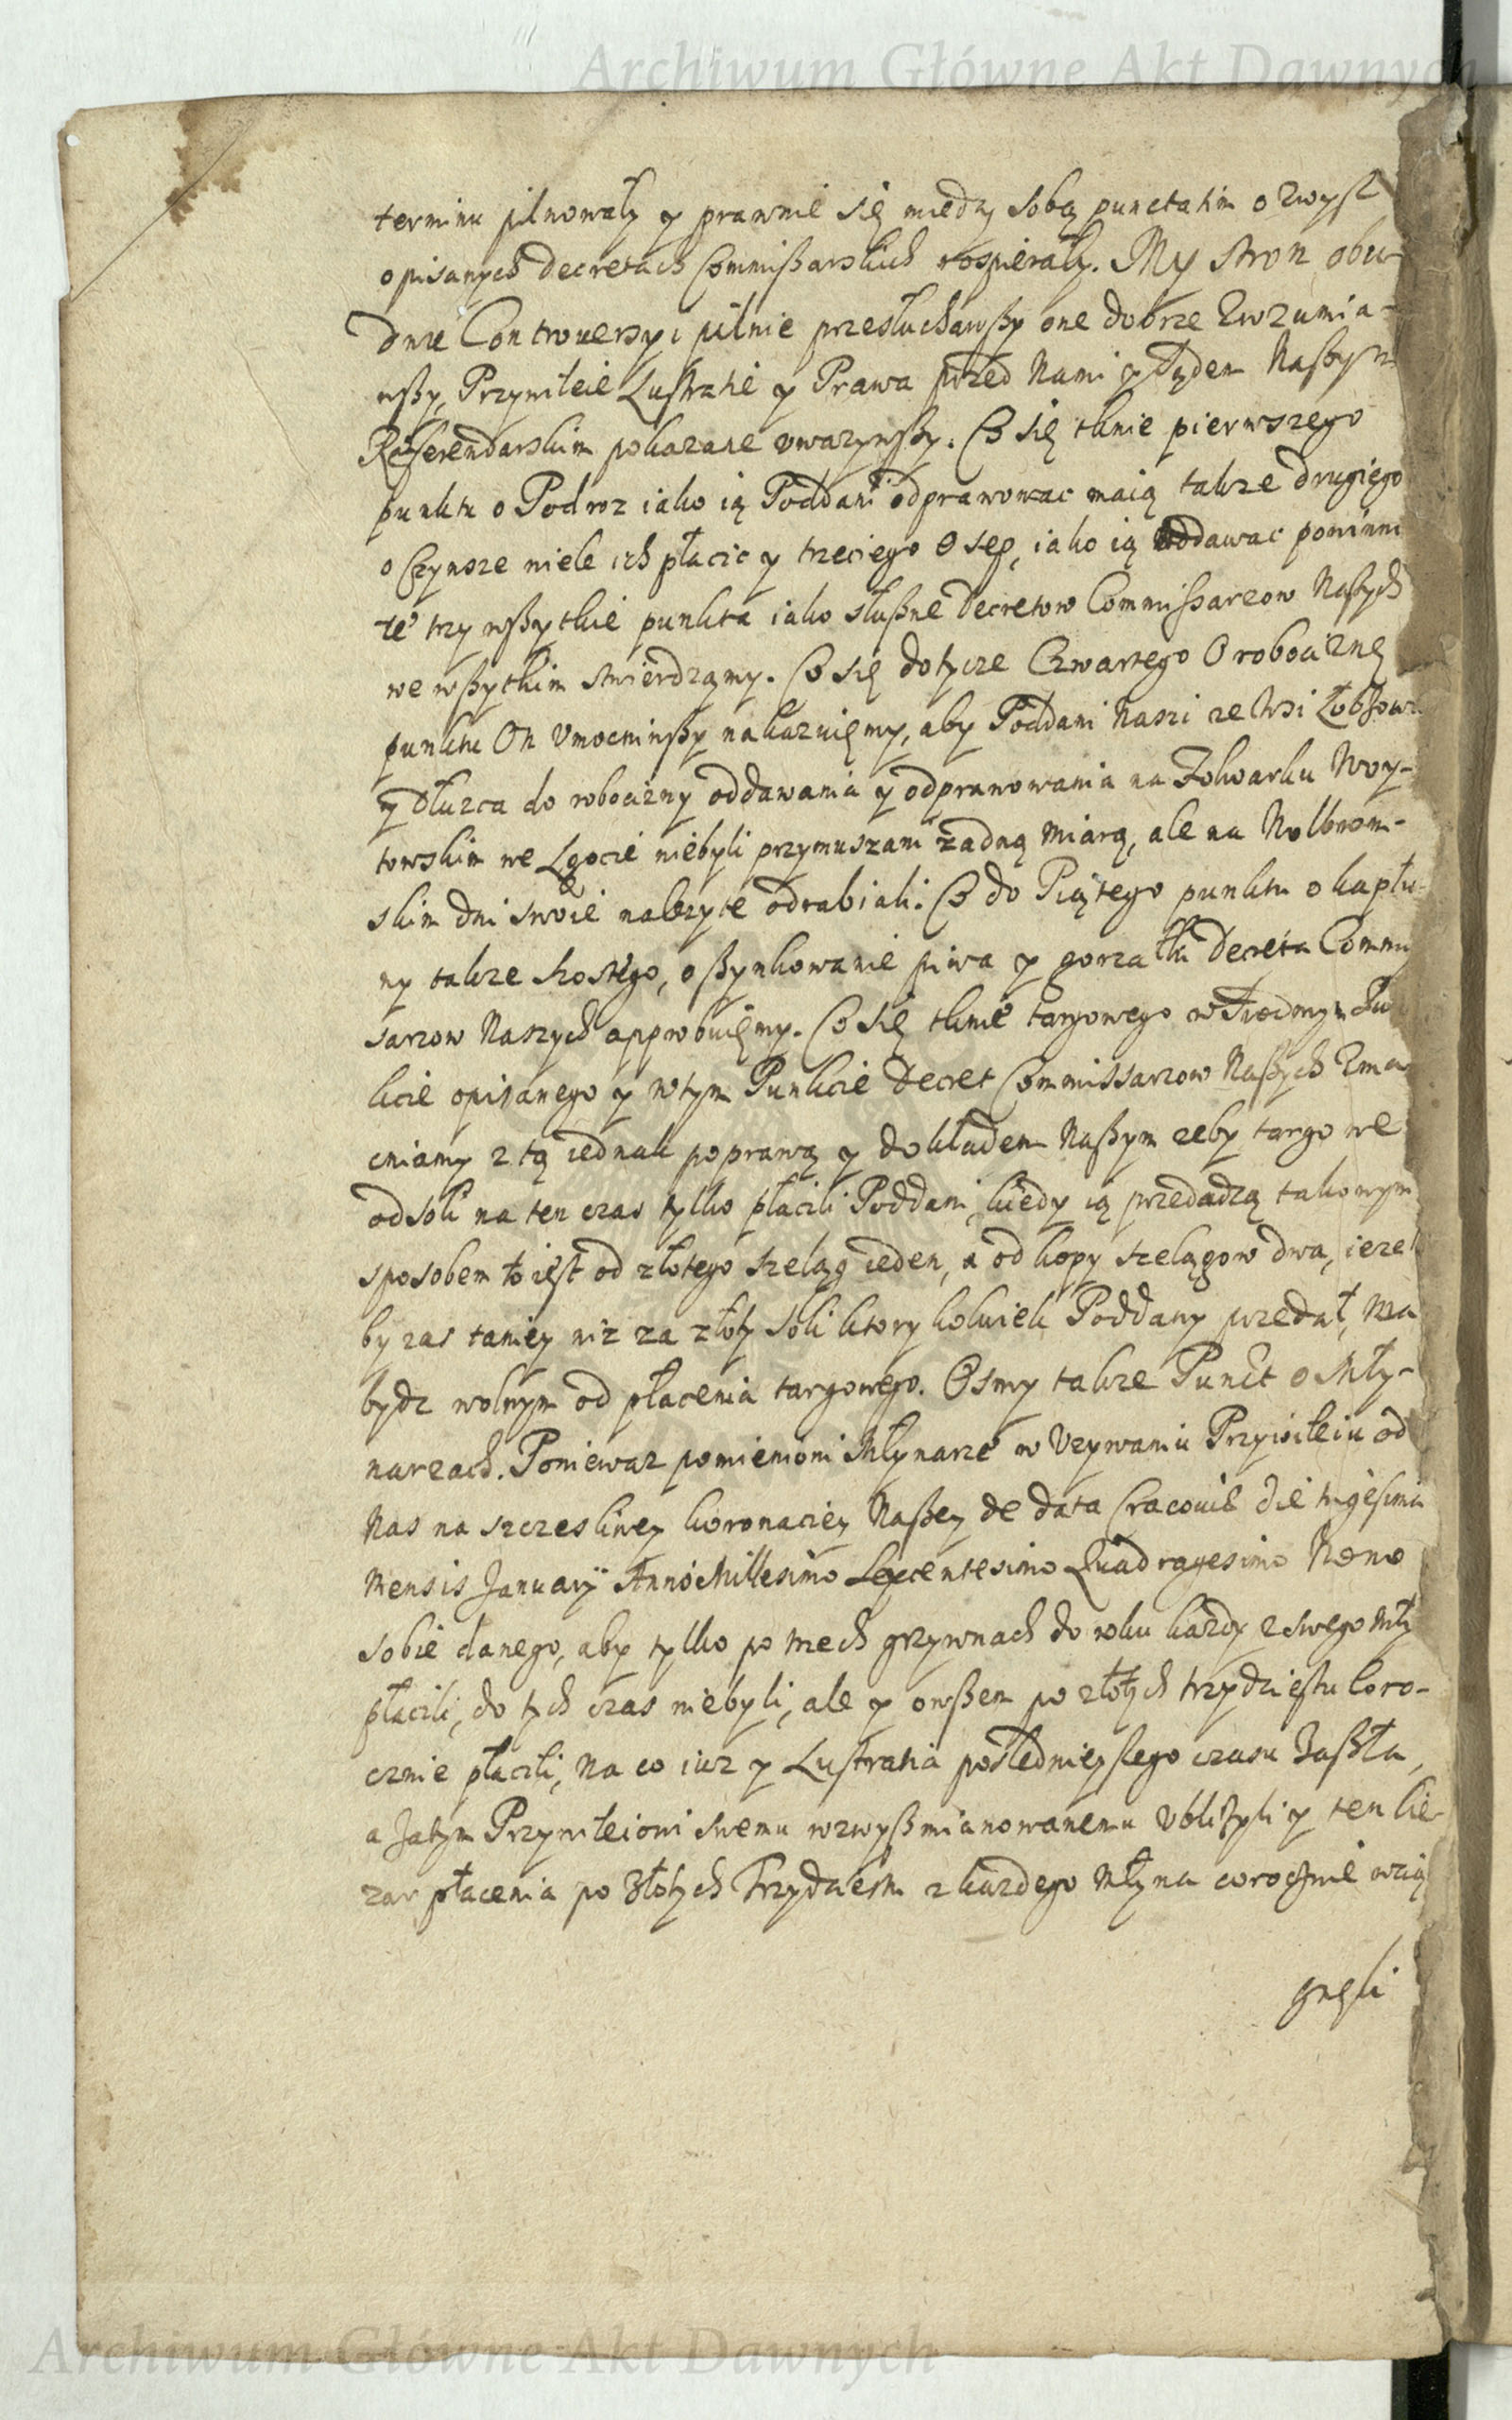 Archiwum Główne Akt Dawnych
terminu pilnowały y prawnie się miedzy sobą punctatim o zwysz
opisanych decretach Commißarskich rospierały. My stron obu-
dwu Controversyi pilnie przesłuchawßy one dobrze zrozumia-
wßy, Przywileie Lustratie y Prawa przed Nami y Sądem Naßym
Referendarskim pokazane uwazywßy. Co się tknie pierwszego
punktu o Podroz iako ią Poddani odprawowac maią takze drugiego
o Czynsze wiele ich płacic y trzeciego Osep, iako ią oddawac powinni
te trzy wßytkie punkta iako słußne decretow Commißarzow Naßych
we wßytkim stwierdzamy. Co się dotycze Czwartego O robociznę
punktu On Umocniwßy nakazuięmy, aby Poddani Naszi ze Wsi
y Dłuzca do robocizny oddawania y odprawowania na Folwarku Woy-
towskim we Lgocie niebyli przymuszani zadną miarą, ale na Wolbrom-
skim dni swoie nalezyte odrabiali. Co do Piątego punktu o kapłu-
ny takze szostego, o ßynkowanie piwa y gorzałki decreta Commi
sarzow Naszych approbuięmy. Co się tknie targowego w Siodmym Pu
kcie opisanego y w tym Punkcie decret Commissarzow Naßych Zma
cniamy z tą iednak poprawą y dokładem Naßym zeby targowe
od soli na ten czas tylko płacili Poddani, kiedy ią przedadzą takowym
sposobem to iest od złotego szeląg ieden, a od kopy szelągow dwa, ieze
by zas taniey niz za złoty soli ktory kolwiek Poddany przedał, ma
bydz wolnym od płacenia targowego. Osmy takze Punct o Mły-
narzach. Poniewaz pomienioni Młynarze w Uzywaniu Przywileiu od
Nas na szczesliwey koronaciey Naßey de data Cracoviæ die trigesima
Mensis January Anno Millesimo Sexcentesimo Quadragesimo Nono
sobie danego, aby tylko po trzech grzywnach do roku kazdy z swego Mły
płacili, do tych czas niebyli, ale y owßem po złotych trzydziestu coro-
cznie płacili, Na co iuz y Lustratia posledniejszego czasu Zaßła,
a Zatym Przywileiowi swemu wzwyß mianowanemu Ubliżyli y ten cię-
zar płacenia po Złotych Trzydziestu z kazdego Młyna corocznie wzią
gnęli
Archiwum Główne Akt Dawnych